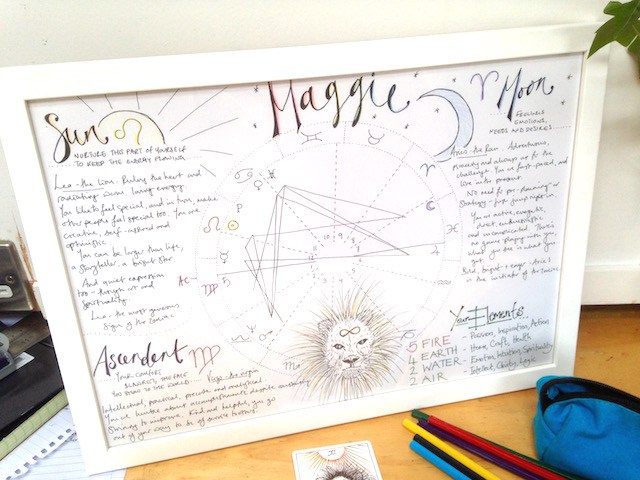 Maggie
Sun ♌
NURTURE THIS PART OF YOURSELF
TO KEEP THE ENERGY FLOWING
Leo - the Lion. Ruling the heart and
radiating warm loving energy.
You like to feel special, and in turn, make
other people feel special too. You are
creative, self-assured and
optimistic
You can be larger than life,
a storyteller - a bright star.
And quiet expression
too - through art and
Spirituality.
Leo - the most generous
Sign of the Zodiac
♈ Moon
FEELINGS
EMOTIONS,
NEEDS AND DESIRES
Aries - the Ram
and always up for the
challenge. You are fast-paced, and
live with
No need for pre-planning or
Strategy - just jump right in.
You're active, energetic,
direct, enthusiastic
and uncomplicated. There's
no game playing with you,
what you see is what you
get.
Bold, bright + eager - Aries
is the initiator of the Zodiac
Ascendent ♍
YOUR COMFORT
BLANKET, THE FACE
YOU SHOW TO THE WORLD
Virgo - the virgin
Intellectual, practical, precise and analytical
You're humble about accomplishments despite constantly
striving to improve. Kind and helpful, you go
out of your way to be of service to others.
AC
Your Elements..
5 FIRE - Passion, Inspiration, Action
4 EARTH - Home, Craft, Health
2 WATER - Emotion, Intuition, Spirituality
2 AIR - Intellect, Clarity, Logic